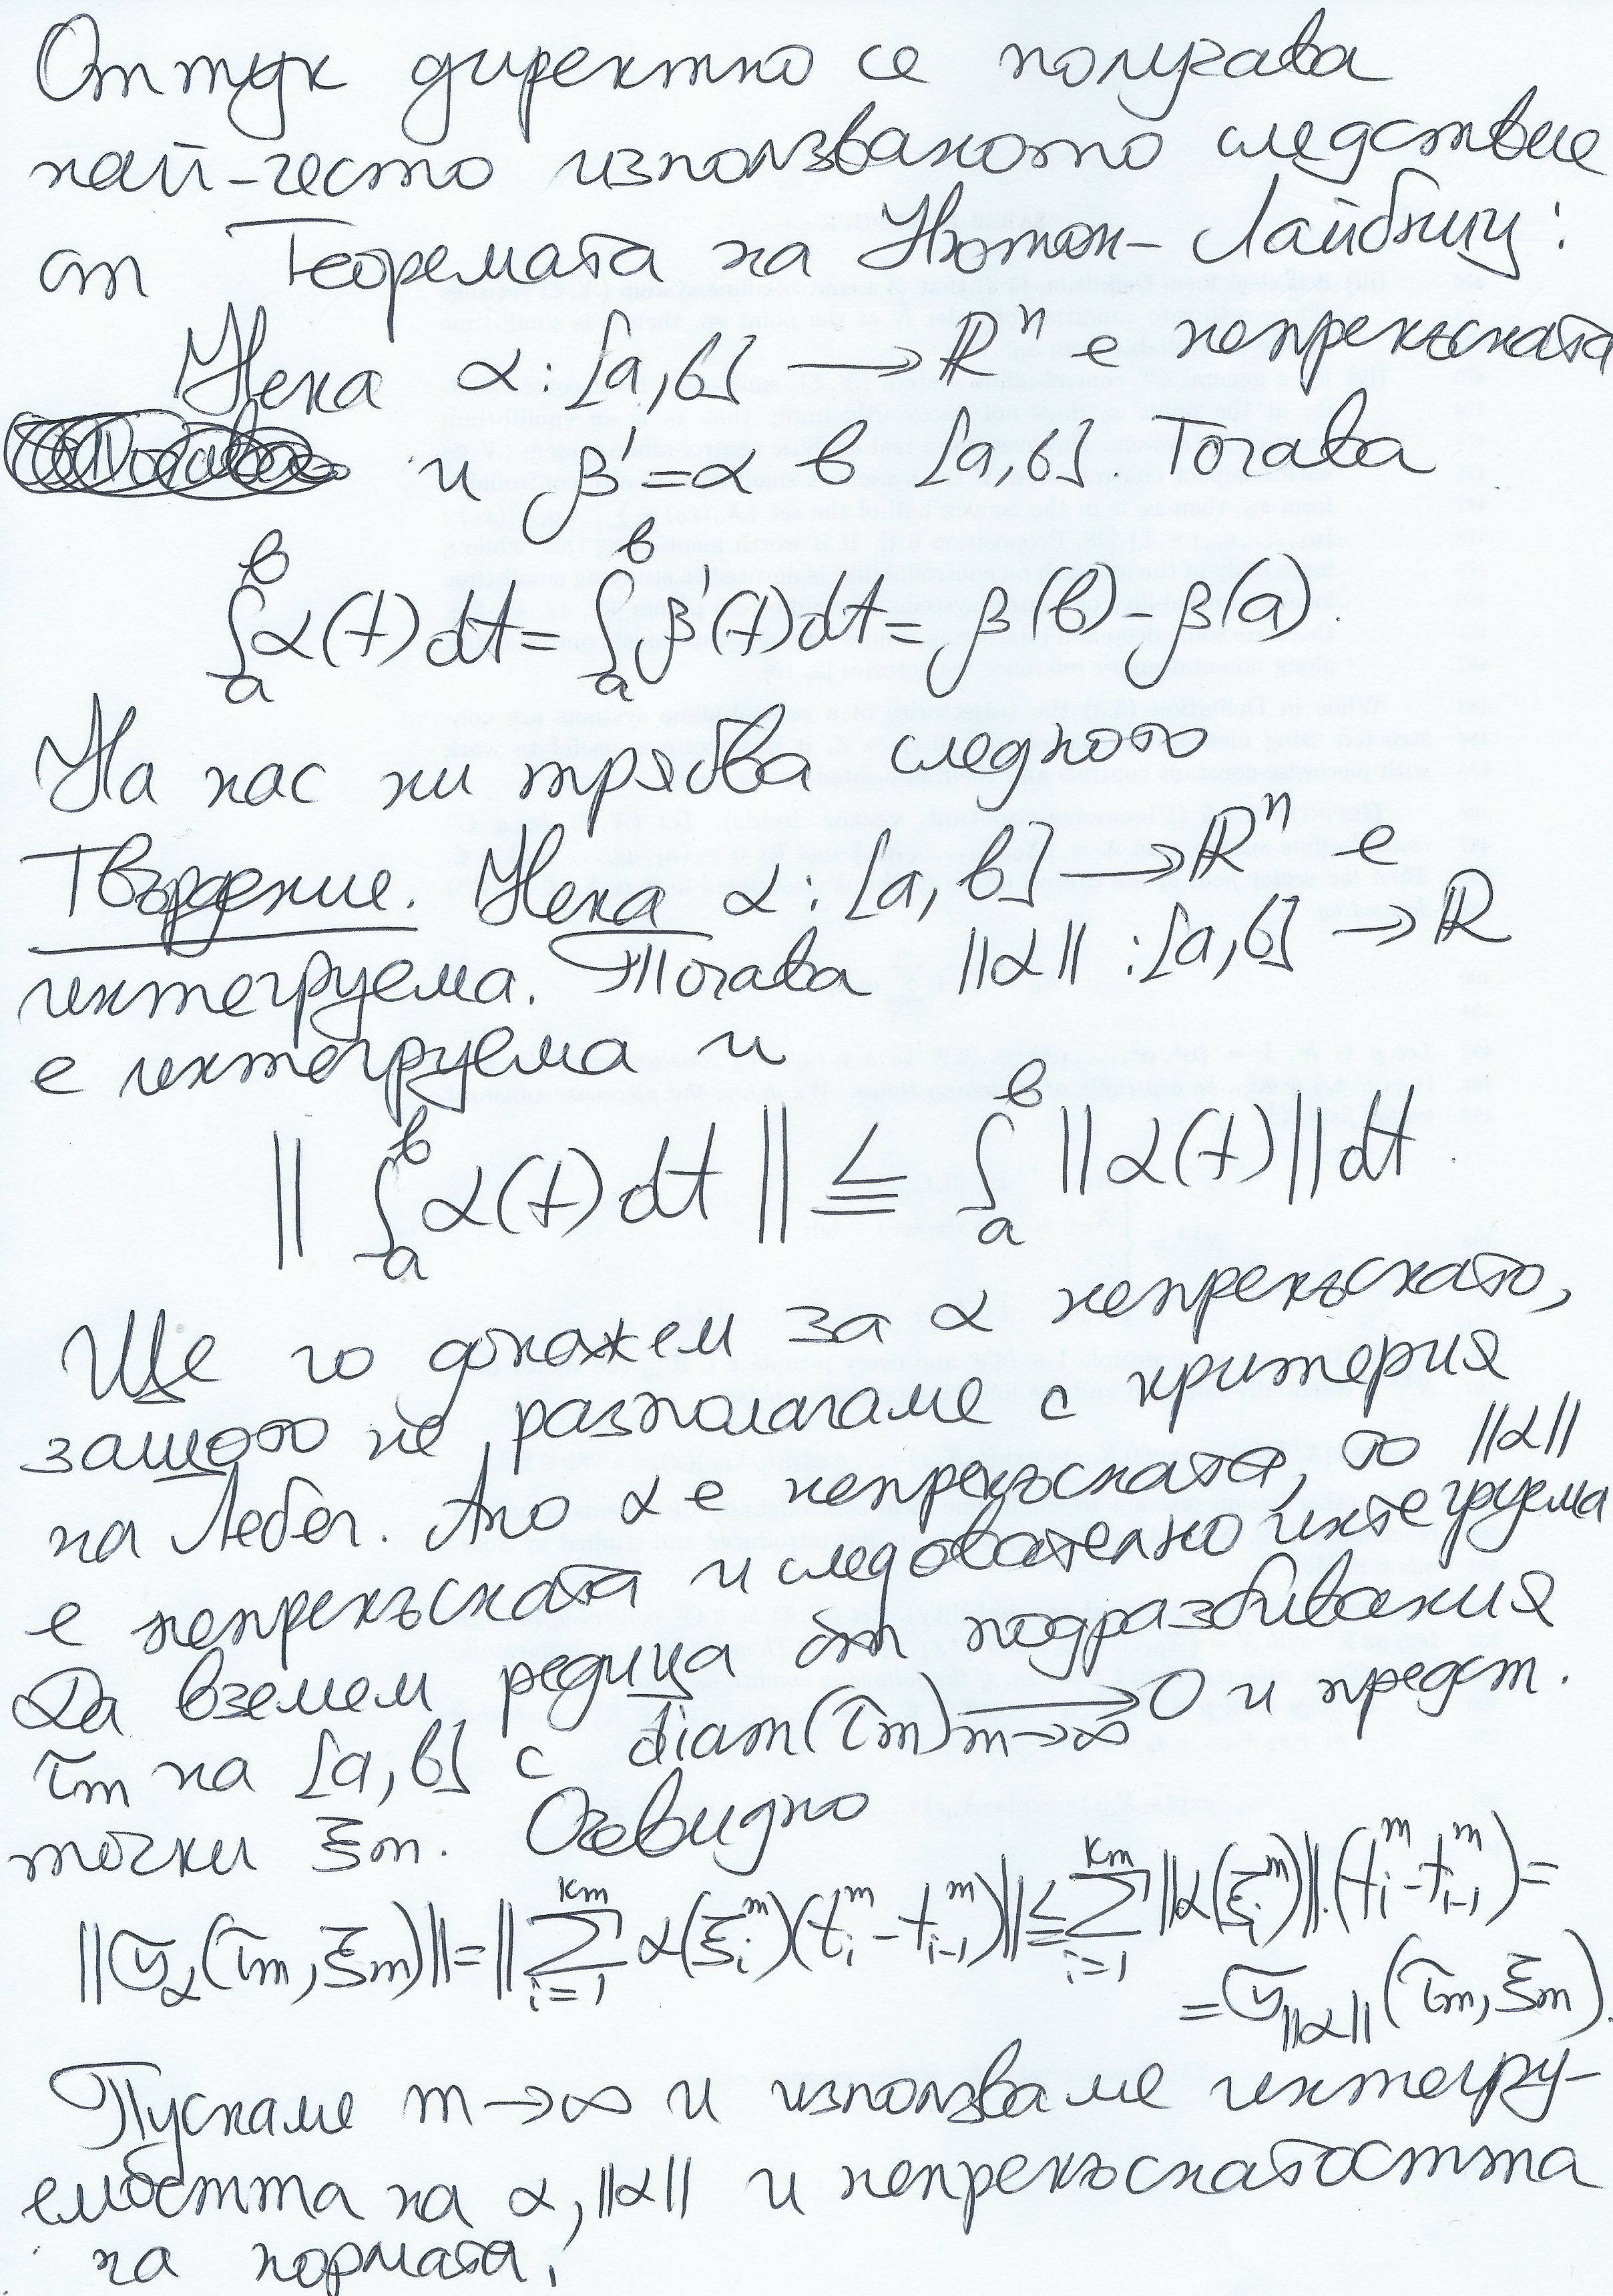 Оттук директно се получава
най-често използваното следствие
от Теоремата на Нютон-Лайбниц:
Нека α: [a,b] → ℝⁿ е непрекъсната
и β' = α в [a,b]. Тогава
∫_a^b α(t)dt = ∫_a^b β'(t)dt = β(b) - β(a).
На нас ни трябва следното
Твърдение. Нека α: [a,b] → ℝⁿ е
интегруема. Тогава ||α||: [a,b] → ℝ
е интегруема и
|| ∫_a^b α(t)dt || ≦ ∫_a^b ||α(t)||dt.
Ще го докажем за α непрекъснато,
защото не разполагаме с критерия
на Лебег. Ако α е непрекъсната, то ||α||
е непрекъсната и следователно интегруема
Да вземем редица от подразбивания
τ_m на [a,b] с diam(τ_m) →_{m→∞} 0 и предст.
точки ξ_m. Очевидно
||σ_α(τ_m, ξ_m)|| = || ∑_{i=1}^{k_m} α(ξ_i^m)(t_i^m - t_{i-1}^m) || ≤ ∑_{i=1}^{k_m} ||α(ξ_i^m)||.(t_i^m - t_{i-1}^m) =
= σ_{||α||}(τ_m, ξ_m).
Пускаме m→∞ и използваме интегру-
емостта на α, ||α|| и непрекъснатостта
на нормата.